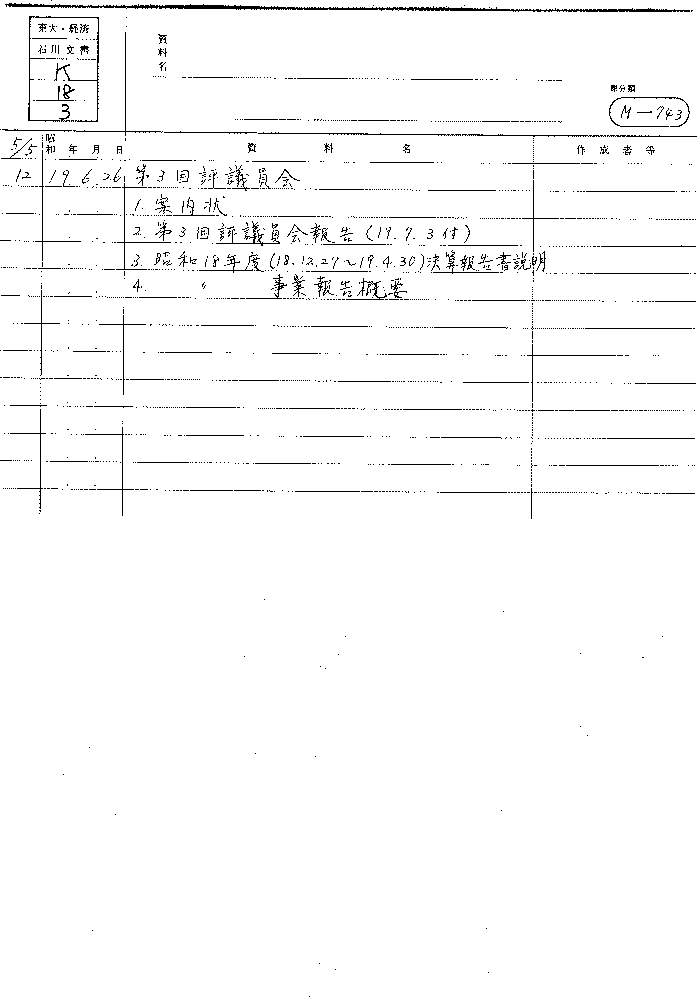 東大・経済
石川文書
K
18
3
資料名
原分類
M-743
5/5 昭和 年 月 日 資料名 作成者等
12 19. 6. 26. 第3回評議員会
1. 案内状
2. 第3回評議員会報告(19.7.3付)
3. 昭和18年度(18.12.27~19.4.30)決算報告書説明
4. 〃 事業報告概要